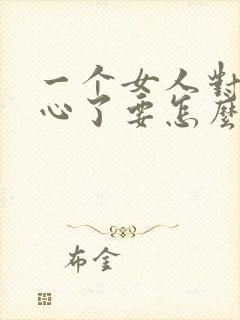 一个女人對
心了要怎麼
布金